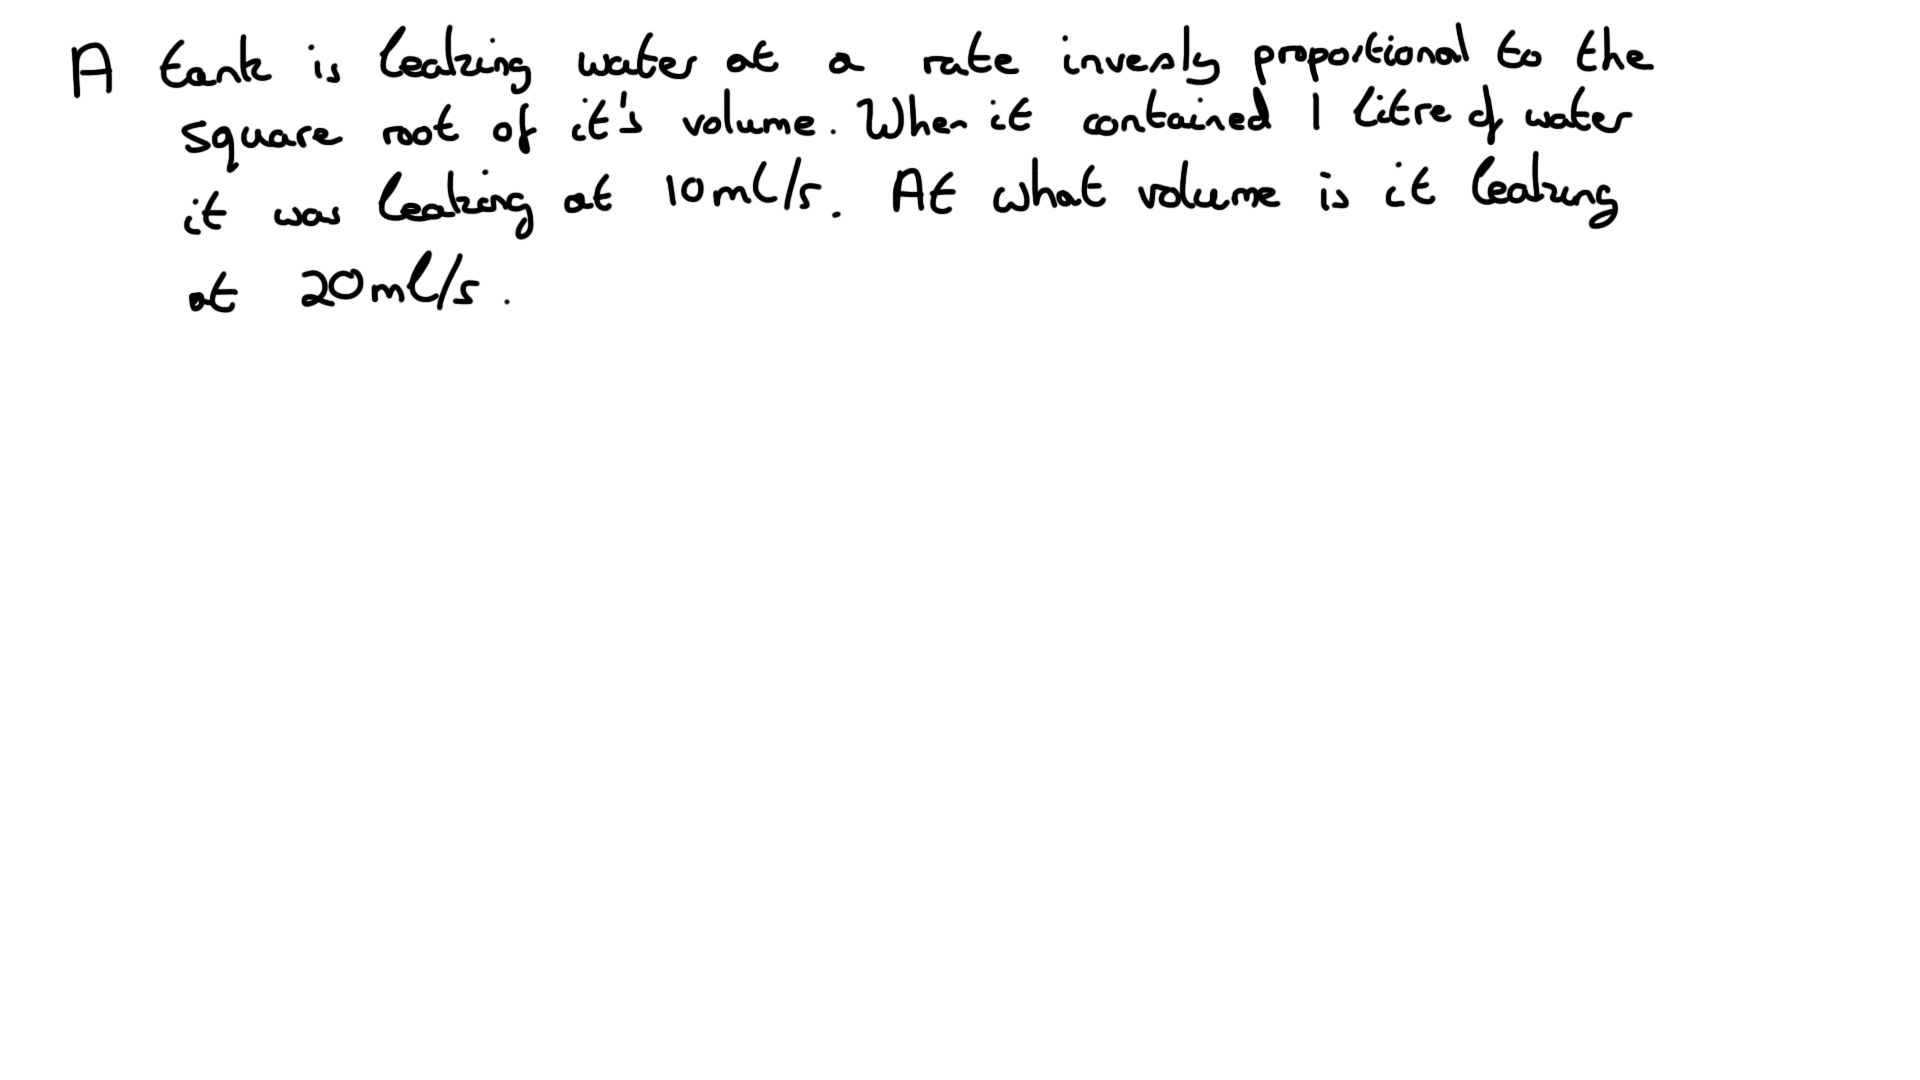 A tank is leaking water at a rate inversly proportional to the
square root of it's volume. When it contained 1 litre of water
it was leaking at 10ml/s. At what volume is it leaking
at 20ml/s.